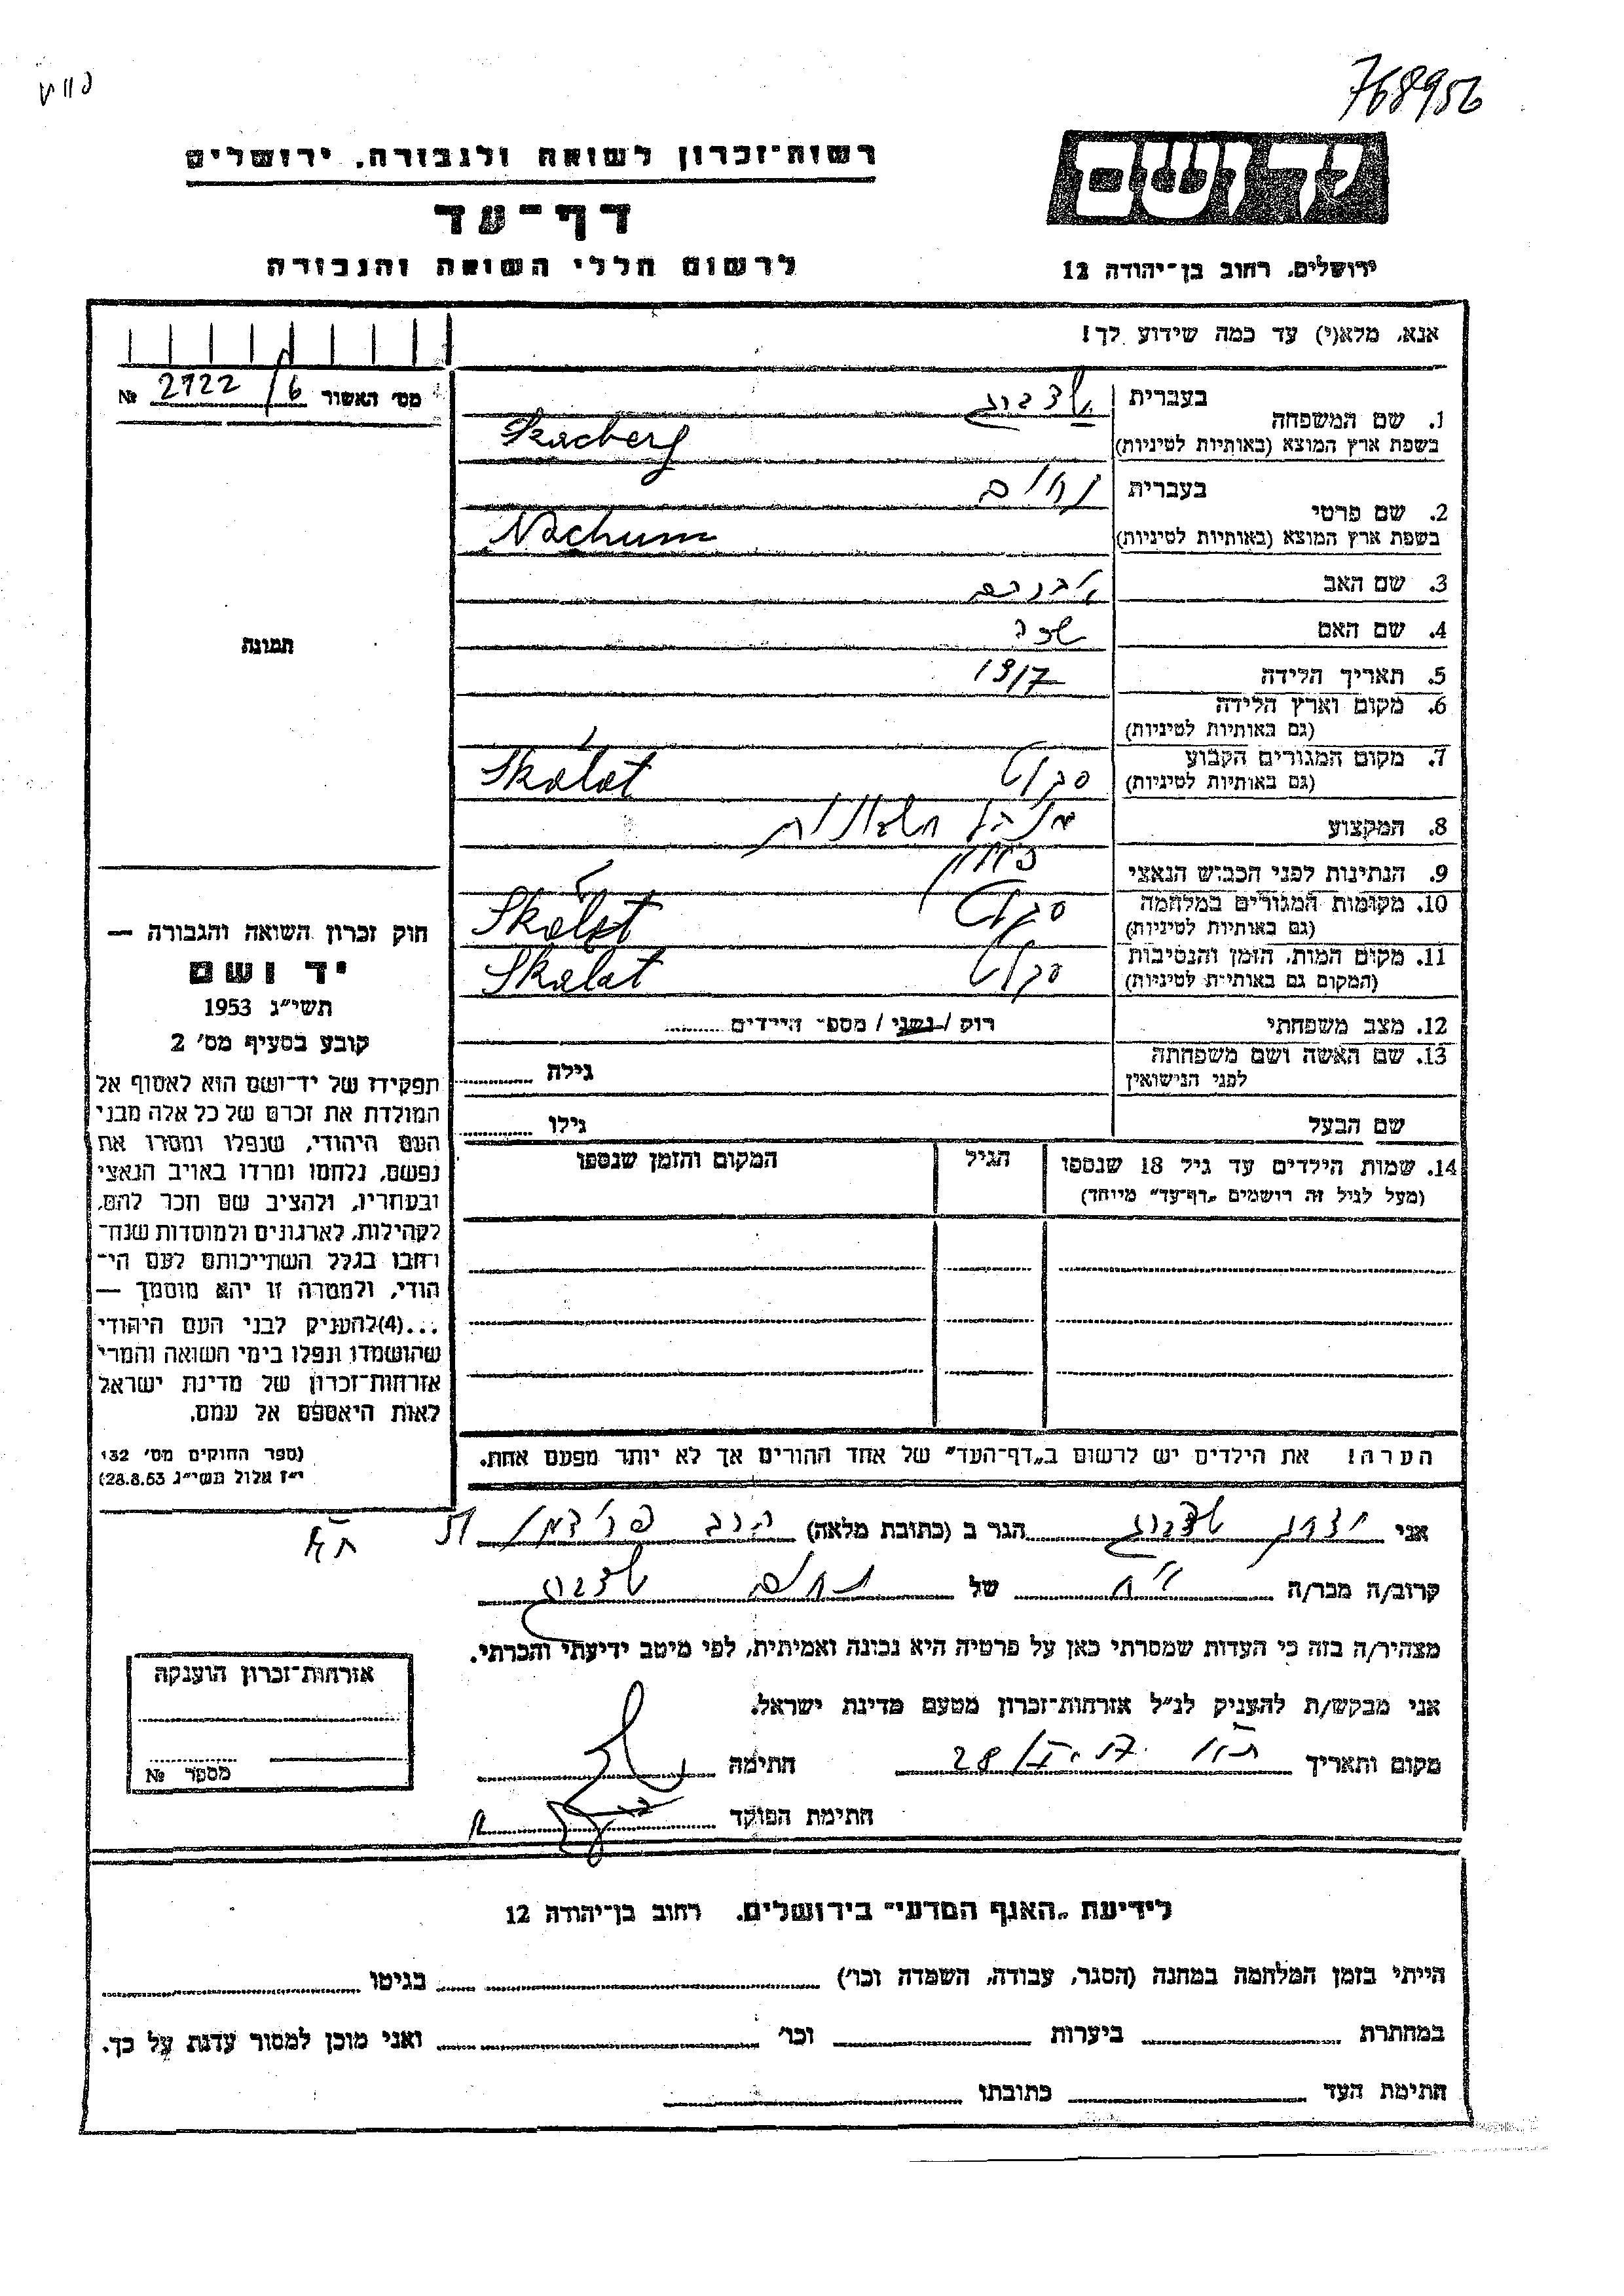 768956
רשות־זכרון לשואה ולגבורה, ירושלים
דף־עד
לרשום חללי השואה והגבורה
יד ושם
ירושלים, רחוב בן־יהודה 12
אנא, מלא(י) עד כמה שידוע לך!
מס׳ האשור 2722/6 №
1. שם המשפחה
בעברית
בשפת ארץ המוצא (באותיות לטיניות)
2. שם פרטי
בעברית נחום
בשפת ארץ המוצא (באותיות לטיניות) Nachum
3. שם האב אברהם
4. שם האם שרה
5. תאריך הלידה 1917
6. מקום וארץ הלידה
(גם באותיות לטיניות)
7. מקום המגורים הקבוע סקלט Skałat
(גם באותיות לטיניות)
8. המקצוע
9. הנתינות לפני הכבוש הנאצי פולין
10. מקומות המגורים במלחמה סקלט Skałat
(גם באותיות לטיניות)
11. מקום המות, הזמן והנסיבות סקלט Skalat
(המקום גם באותיות לטיניות)
12. מצב משפחתי רווק / נשוי / מספר הילדים
13. שם האשה ושם משפחתה
לפני הנישואין
גילה
שם הבעל גילו
14. שמות הילדים עד גיל 18 שנספו הגיל המקום והזמן שנספו
(מעל לגיל זה רושמים „דף־עד” מיוחד)
הערה! את הילדים יש לרשום ב„דף־העד” של אחד ההורים אך לא יותר מפעם אחת.
תמונה
חוק זכרון השואה והגבורה —
יד ושם
תשי״ג 1953
קובע בסעיף מס׳ 2
תפקידו של יד־ושם הוא לאסוף אל
המולדת את זכרם של כל אלה מבני
העם היהודי, שנפלו ומסרו את
נפשם, נלחמו ומרדו באויב הנאצי
ובעוזריו, ולהציב שם וזכר להם,
לקהילות, לארגונים ולמוסדות שנח־
רבו בגלל השתייכותם לעם הי־
הודי, ולמטרה זו יהא מוסמך —
...(4) להעניק לבני העם היהודי
שהושמדו ונפלו בימי השואה והמרי
אזרחות־זכרון של מדינת ישראל
לאות היאספם אל עמם.
(ספר החוקים מס׳ 132
י״ז אלול תשי״ג 28.8.53)
אני הגר ב (כתובת מלאה) הרב פרידמן ת״א
קרוב/ה מכר/ה אח של נחום
מצהיר/ה בזה כי העדות שמסרתי כאן על פרטיה היא נכונה ואמיתית, לפי מיטב ידיעתי והכרתי.
אני מבקש/ת להעניק לנ״ל אזרחות־זכרון מטעם מדינת ישראל.
מקום ותאריך חתימה
חתימת הפוקד
אזרחות־זכרון הוענקה
מספר №
לידיעת „האגף המדעי” בירושלים, רחוב בן־יהודה 12
הייתי בזמן המלחמה במחנה (הסגר, עבודה, השמדה וכו׳) בגיטו
במחתרת ביערות וכו׳ ואני מוכן למסור עדות על כך.
חתימת העד כתובתו